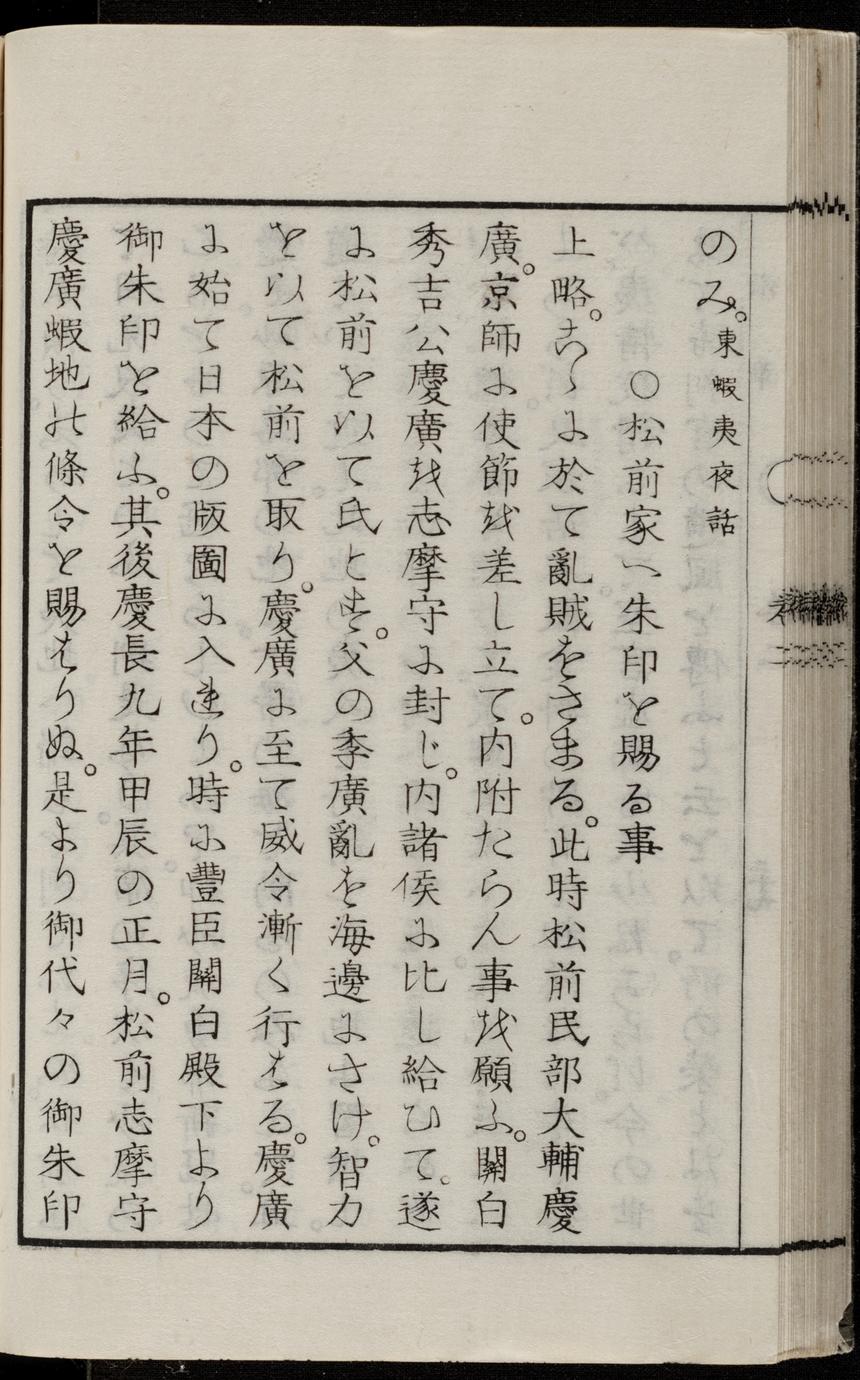 のみ。東蝦夷夜話
○松前家へ朱印を賜る事
上略。こゝに於て亂賊をさまる。此時松前民部大輔慶
廣。京師に使節を差し立て。内附たらん事を願ふ。關白
秀吉公慶廣を志摩守に封じ。内諸侯に比し給ひて。遂
に松前を以て氏とす。父の季廣亂を海邊にさけ。智力
を以て松前を取り。慶廣に至て威令漸く行はる。慶廣
に始て日本の版圖に入れり。時に豐臣關白殿下より
御朱印を給ふ。其後慶長九年甲辰の正月。松前志摩守
慶廣蝦地の條令を賜はりぬ。是より御代々の御朱印